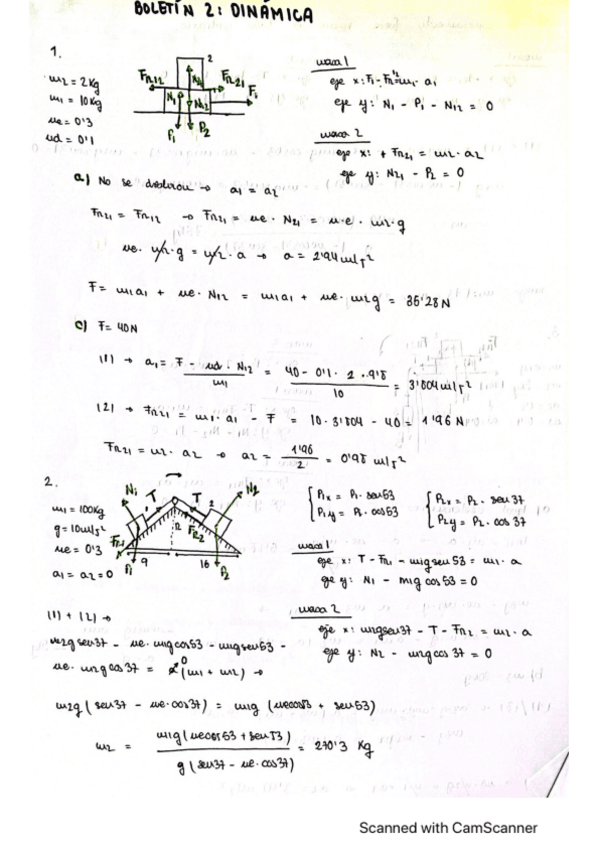 BOLETÍN 2: DINÁMICA
1.
m2 = 2Kg
m1 = 10Kg
μe = 0'3
μd = 0'1
2
FR12
FR21
F1
N1
N12
P1
P2
masa 1
eje x: F1 - FR12 = m1 · a1
eje y: N1 - P1 - N12 = 0
masa 2
eje x: + FR21 = m2 · a2
eje y: N21 - P2 = 0
a) No se deslizan → a1 = a2
FR21 = FR12 → FR21 = μe · N21 = μe · m2 · g
μe · m2 · g = m2 · a → a = 2'94 m/s²
F = m1a1 + μe · N12 = m1a1 + μe · m2g = 35'28 N
c) F = 40N
(1) → a1 = F - μd · N12 / m1 = 40 - 0'1 · 2 · 9'8 / 10 = 3'804 m/s²
(2) → FR21 = m1 · a1 - F = 10 · 3'804 - 40 = 1'96 N
FR21 = m2 · a2 → a2 = 1'96 / 2 = 0'98 m/s²
2.
m1 = 100Kg
g = 10m/s²
μe = 0'3
a1 = a2 = 0
N1
T
T
2
N2
FR1
FR2
12
P1
9
16
P2
P1x = P1 · sen53
P1y = P1 · cos53
P2x = P2 · sen 37
P2y = P2 · cos 37
masa 1
eje x: T - FR1 - m1gsen 53 = m1 · a
eje y: N1 - m1g cos 53 = 0
masa 2
eje x: m2gsen37 - T - FR2 = m2 · a
eje y: N2 - m2gcos 37 = 0
(1) + (2) →
m2gsen37 - μe · m1gcos53 - m1gsen53 -
μe · m2gcos37 = a 0 (m1 + m2) →
m2g (sen37 - μe · cos37) = m1g (μecos53 + sen53)
m2 = m1g(μecos53 + sen53) / g(sen37 - μe · cos37) = 270'3 Kg
Scanned with CamScanner